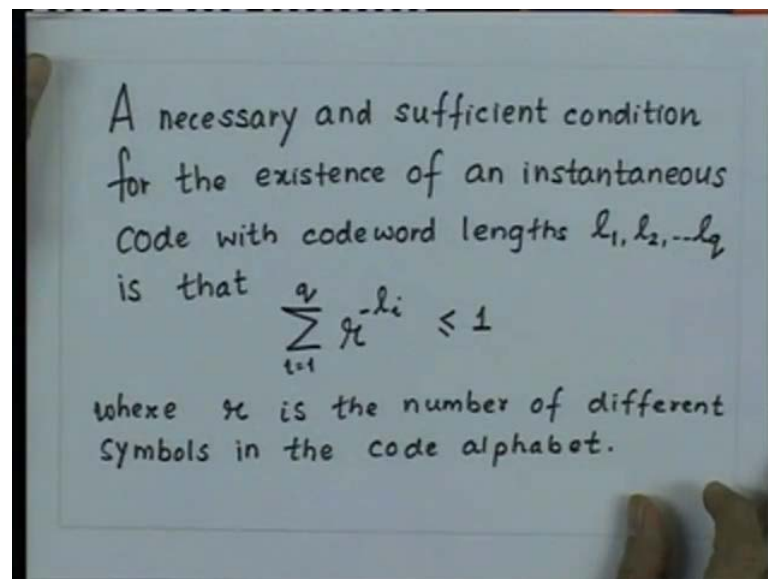 A necessary and sufficient condition
for the existence of an instantaneous
code with codeword lengths l₁, l₂, ... l_q
is that
∑_{i=1}^{q} r^{-l_i} ≤ 1
where r is the number of different
symbols in the code alphabet.